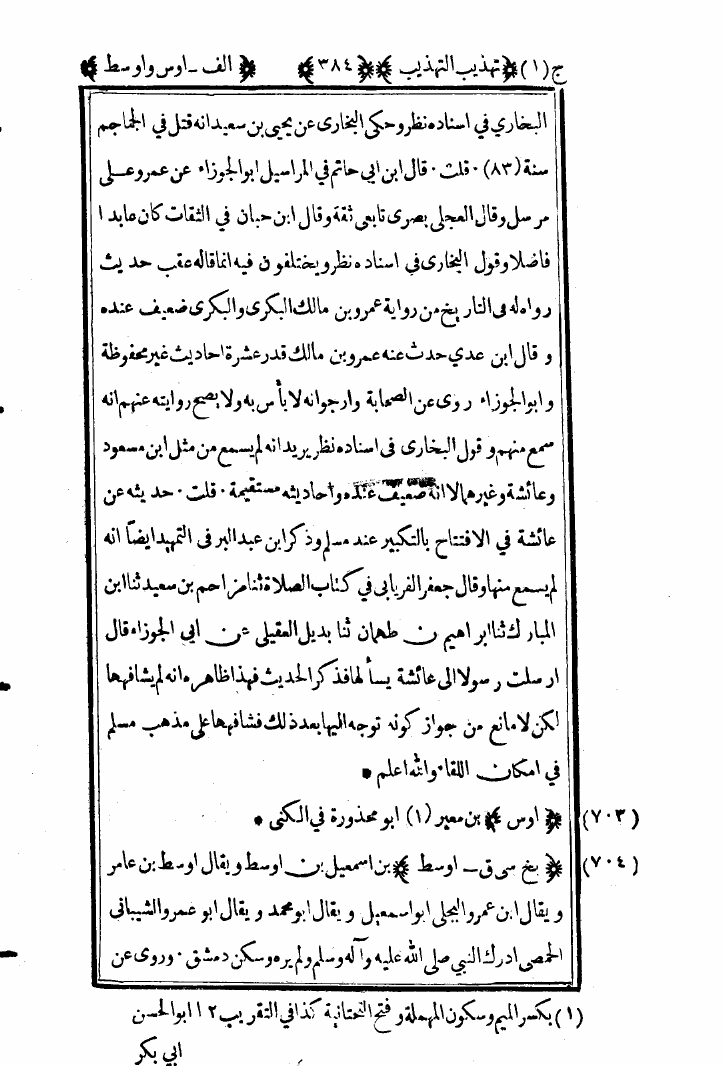 ج(١) ﴿تهذيب التهذيب﴾ ﴿٣٨٤﴾ ﴿الف - اوس واوسط﴾
البخاري في اسناده نظر وحكى البخارى عن يحيى بن سعيد انه قتل في الجماجم
سنة (٨٣) · قلت · قال ابن ابي حاتم في المراسيل ابو الجوزاء عن عمر وعلى
مرسل وقال العجلى بصرى تابعى ثقة وقال ابن حبان في الثقات كان عابدا
فاضلا وقول البخارى في اسناده نظر ويختلفون فيه انما قاله عقب حديث
رواه له فى التاريخ من رواية عمرو بن مالك البكرى والبكرى ضعيف عنده
و قال ابن عدي حدث عنه عمرو بن مالك قدر عشرة احاديث غير محفوظة
وابو الجوزاء روى عن الصحابة وارجو انه لا بأس به ولا يصح روايته عنهم انه
سمع منهم و قول البخارى فى اسناده نظر يريد انه لم يسمع من مثل ابن مسعود
وعائشة وغيرهما لا انه ضعيف عنده واحاديثه مستقيمة · قلت · حديثه عن
عائشة في الافتتاح بالتكبير عند مسلم وذكر ابن عبد البر فى التمهيد ايضا انه
لم يسمع منها وقال جعفر الفريابى في كتاب الصلاة ثنا مزاحم بن سعيد ثنا ابن
المبارك ثنا ابراهيم بن طهمان ثنا بديل العقيلى عن ابي الجوزاء قال
ارسلت رسولا الى عائشة يسألها فذكر الحديث فهذا ظاهره انه لم يشافهها
لكن لا مانع من جواز كونه توجه اليها بعد ذلك فشافهها على مذهب مسلم
في امكان اللقاء والله اعلم •
(٧٠٣) ﴿اوس﴾ بن معير (١) ابو محذورة في الكنى •
(٧٠٤) ﴿بخ سى ق - اوسط﴾ بن اسمعيل بن اوسط و يقال اوسط بن عامر
و يقال ابن عمرو البجلى ابو اسمعيل و يقال ابو محمد و يقال ابو عمرو الشيبانى
الحمصى ادرك النبي صلى الله عليه وآله وسلم ولم يره وسكن دمشق · وروى عن
(١) بكسر الميم وسكون المهملة و فتح التحتانية كذا في التقريب ١٢ ابو الحسن
ابي بكر